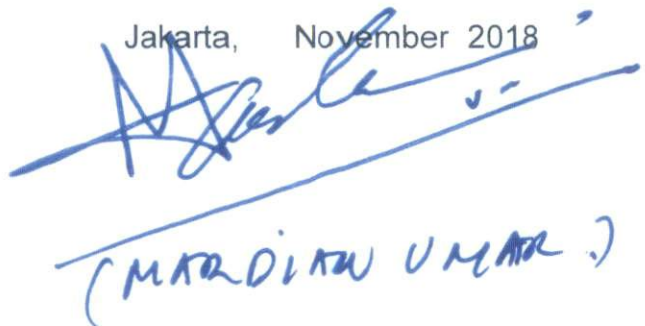 Jakarta, November 2018
(MARDIAN UMAR)